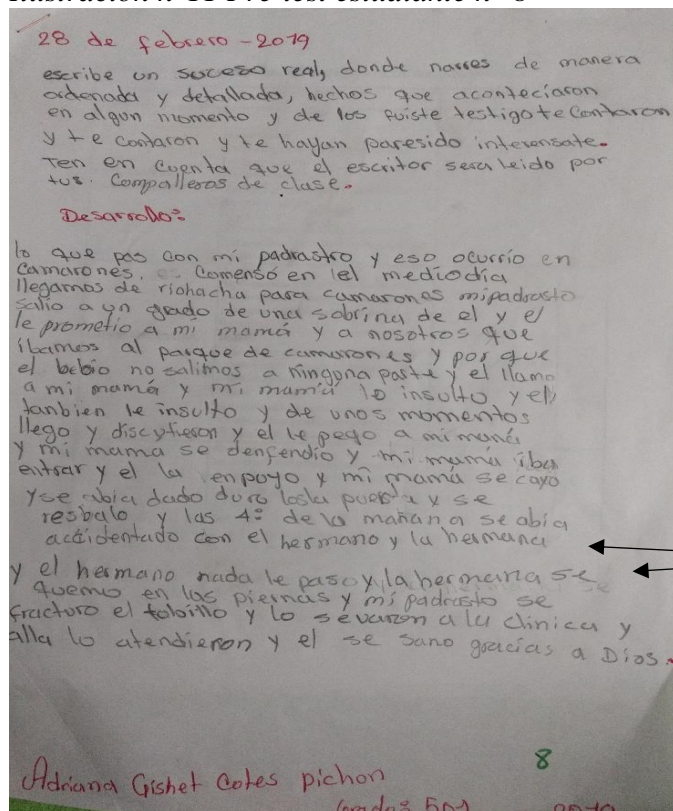 28 de febrero - 2019
escribe un suceso real, donde narres de manera
ordenada y detallada, hechos que acontecíaron
en algun momento y de los fuiste testigo te Contaron
y te contaron y te hayan paresido interensate.
Ten en cuenta que el escritor sera leido por
tus. Compalleros de clase.
Desarrollo:
lo que pas con mi padrastro y eso ocurrio en
Camarones. Comensó en el mediodia
llegamos de riohacha para camarones mipadrasto
salio a un grado de una sobrina de el y el
le prometio a mi mamá y a nosotros que
íbamos al parque de camarones y por que
el bebio no salimos a ningona parte y el llamo
a mi mamá y mi mamá lo insulto y el
tanbien le insulto y de unos momentos
llego y discutieron y el le pego a mi mamá
y mi mama se denfendio y mi mamá iba
entrar y el la enpoyo y mi mamá se cayo
y se abia dado duro la puerta y se
resbalo y las 4º de la mañana se abía
accidentado con el hermano y la hermana
y el hermano nada le paso y la hermana se
quemo en las piernas y mi padrasto se
fracturo el tobillo y lo sevaron a la clinica y
alla lo atendieron y el se sano gracias a Dios.
8
Adriana Gishet Cotes pichon
Grado: 501
2019